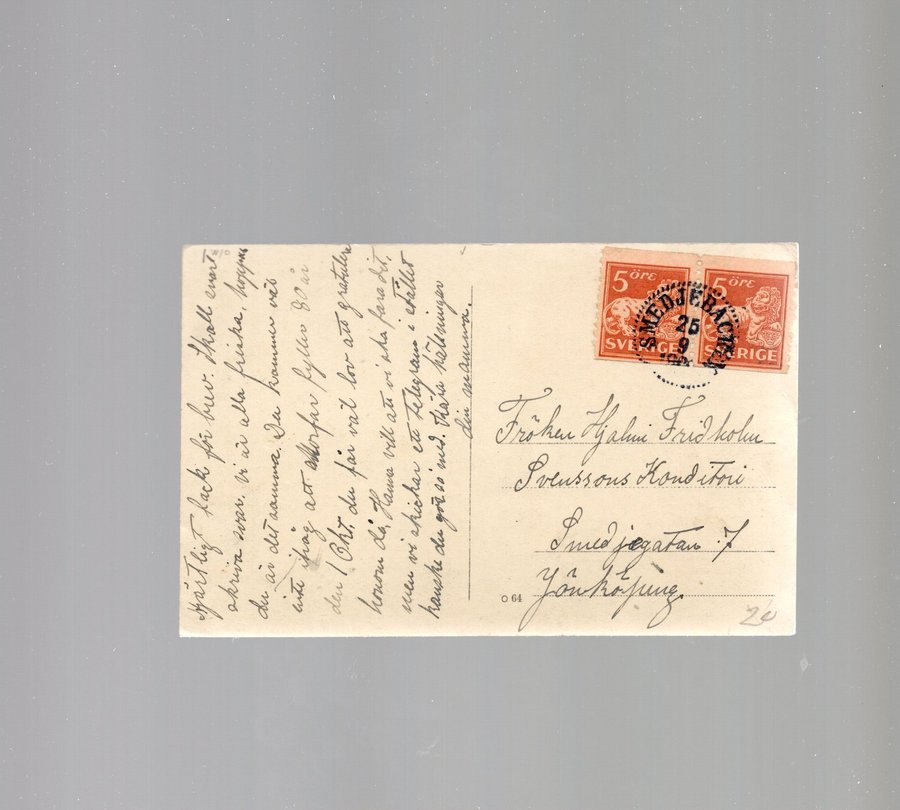 Hjärtligt tack för brev. Skall snart
skriva svar. vi är alla friska, hoppas
du är det samma. Du kommer väl
inte ihåg att Morfar fyller 80 år
den 1 Okt. du får väl lov att gratulera
honom då, Hanna vill att vi ska fara dit,
men vi skickar ett telegram i stället
kanske du gör so med. Kära hälsningar
din mamma.
5 ÖRE
SVERIGE
5 ÖRE
SVERIGE
SMEDJEBACKEN
25
9
Fröken Hjalmi Fridholm
Svenssons Konditori
Smedjegatan 7
Jönköping.
O 64
20